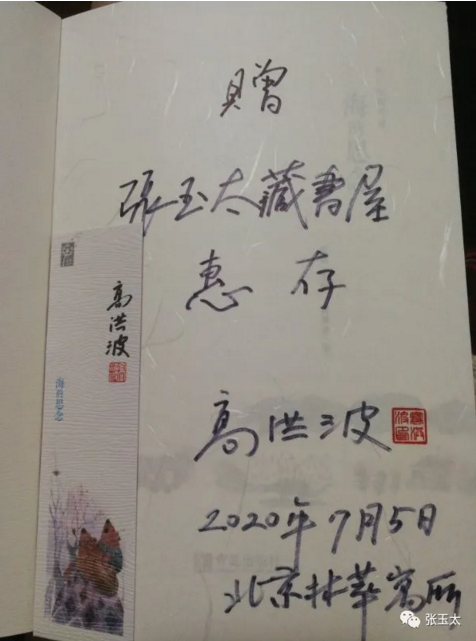 贈
張玉太藏書屋
惠存
高洪波
2020年7月5日
北京林萃寓所
高洪波
张玉太